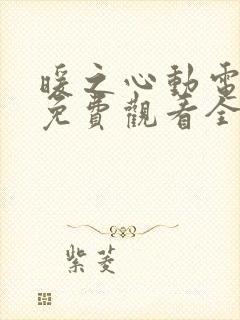 暖之心動電
免費觀看全
紫菱